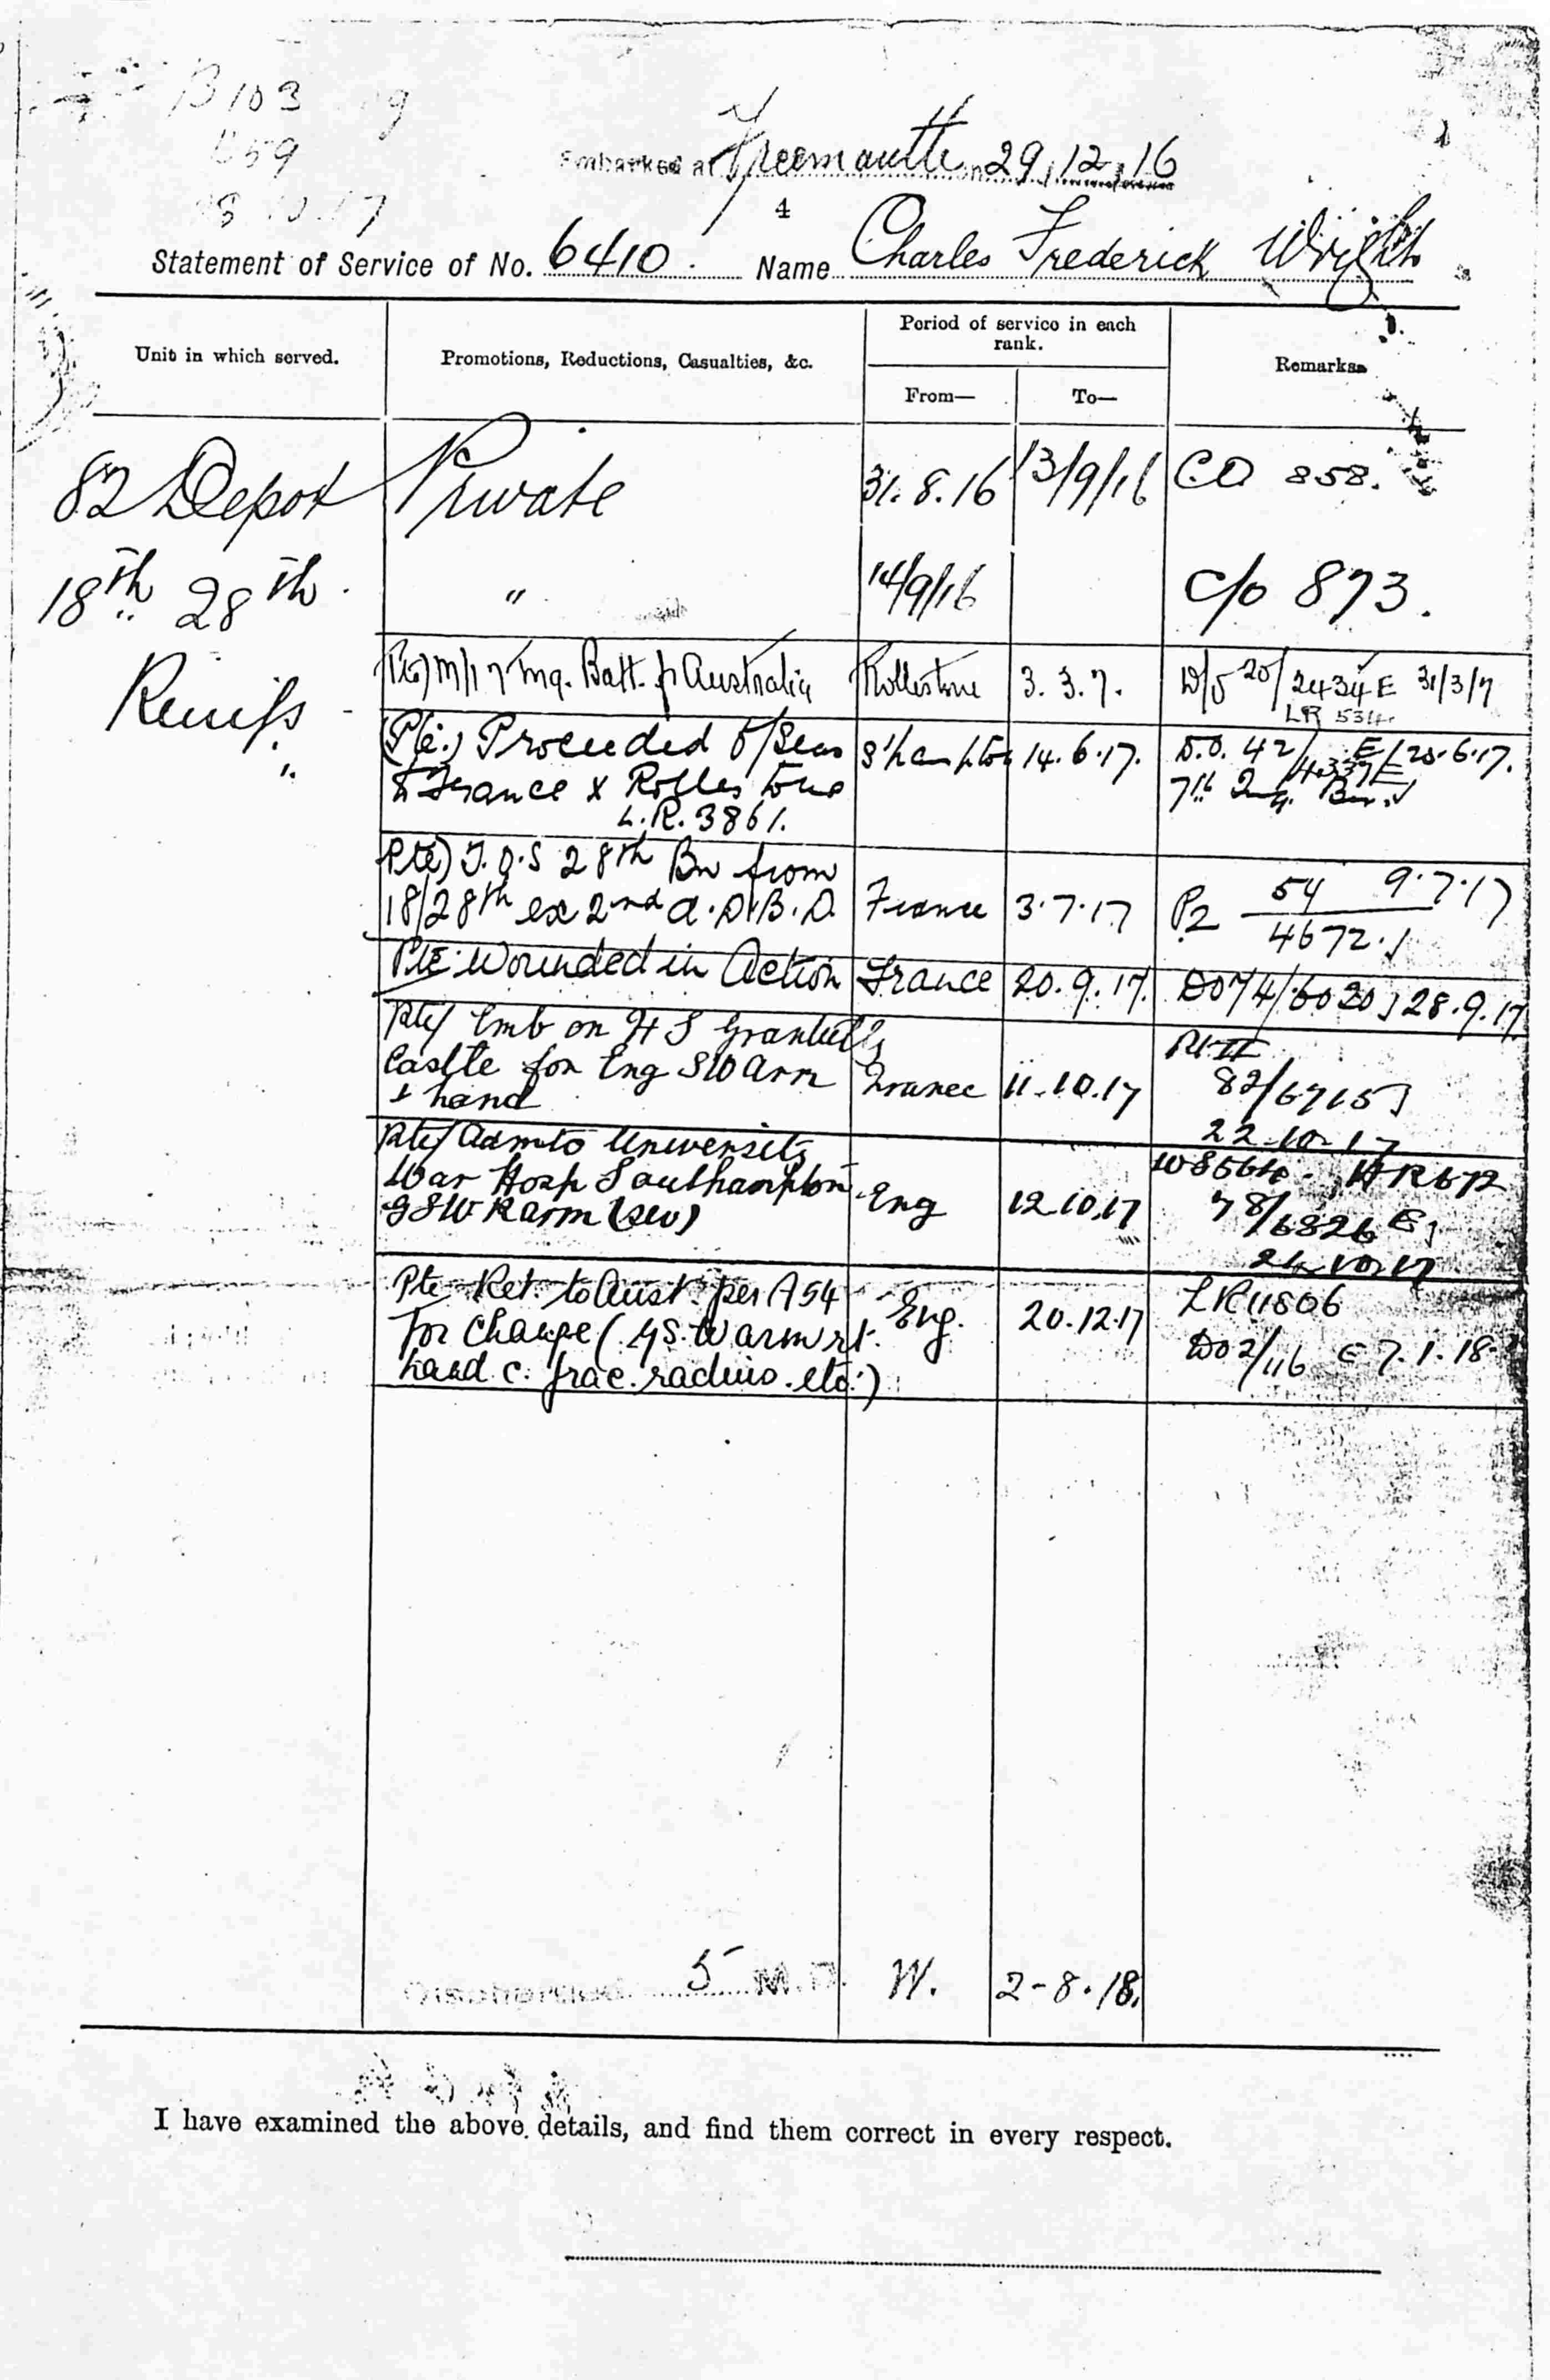 B 103
Embarked at Freemantle on 29.12.16
4
Statement of Service of No. 6410. Name Charles Frederick Wright
Unit in which served.
Promotions, Reductions, Casualties, &c.
Period of service in each
rank.
From—
To—
Remarks.
82 Depot Private 31.8.16 13/9/16 CO 858.
18th 28th " 14/9/16 C/o 873.
Reinfs
Pte) M/I 7 Tng. Batt. f Australia Rollestone 3.3.7. D/O 20/2434E 31/3/7
LR 534.
(Pte.) Proceeded O/Seas S'hampton 14.6.17. D.O. 42/4337E/23.6.17.
to France x Rollestone 7th Tng. Bn.
L.R. 3861.
Pte) T.O.S 28th Bn from
18/28th ex 2nd A.D.B.D. France 3.7.17 P2 54 9.7.17
4672.
Pte. Wounded in Action France 20.9.17. DO 74/6020 28.9.17
Pte/ Emb on H S Grantully
Castle for Eng SW Arm France 11.10.17 82/6715
+ hand
22.10.17
Pte/ Adm to University
War Hosp Southampton Eng 12.10.17 78/6826 E
GSW R arm (sev)
24.10.17
Pte Ret. to Aust. per A54 LR 11806
for change (GS. W arm rt. Eng. 20.12.17 DO 2/116 E 7.1.18
hand c. frac. radius. etc.)
Discharged 5 M.D. W. 2-8.18.
I have examined the above details, and find them correct in every respect.